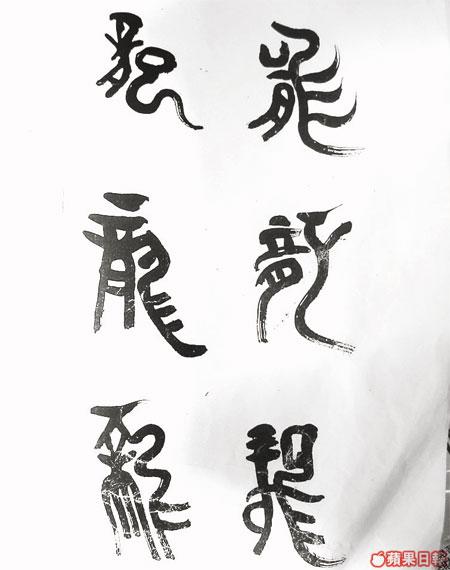 龍龍龍
龍龍龍
蘋果日報